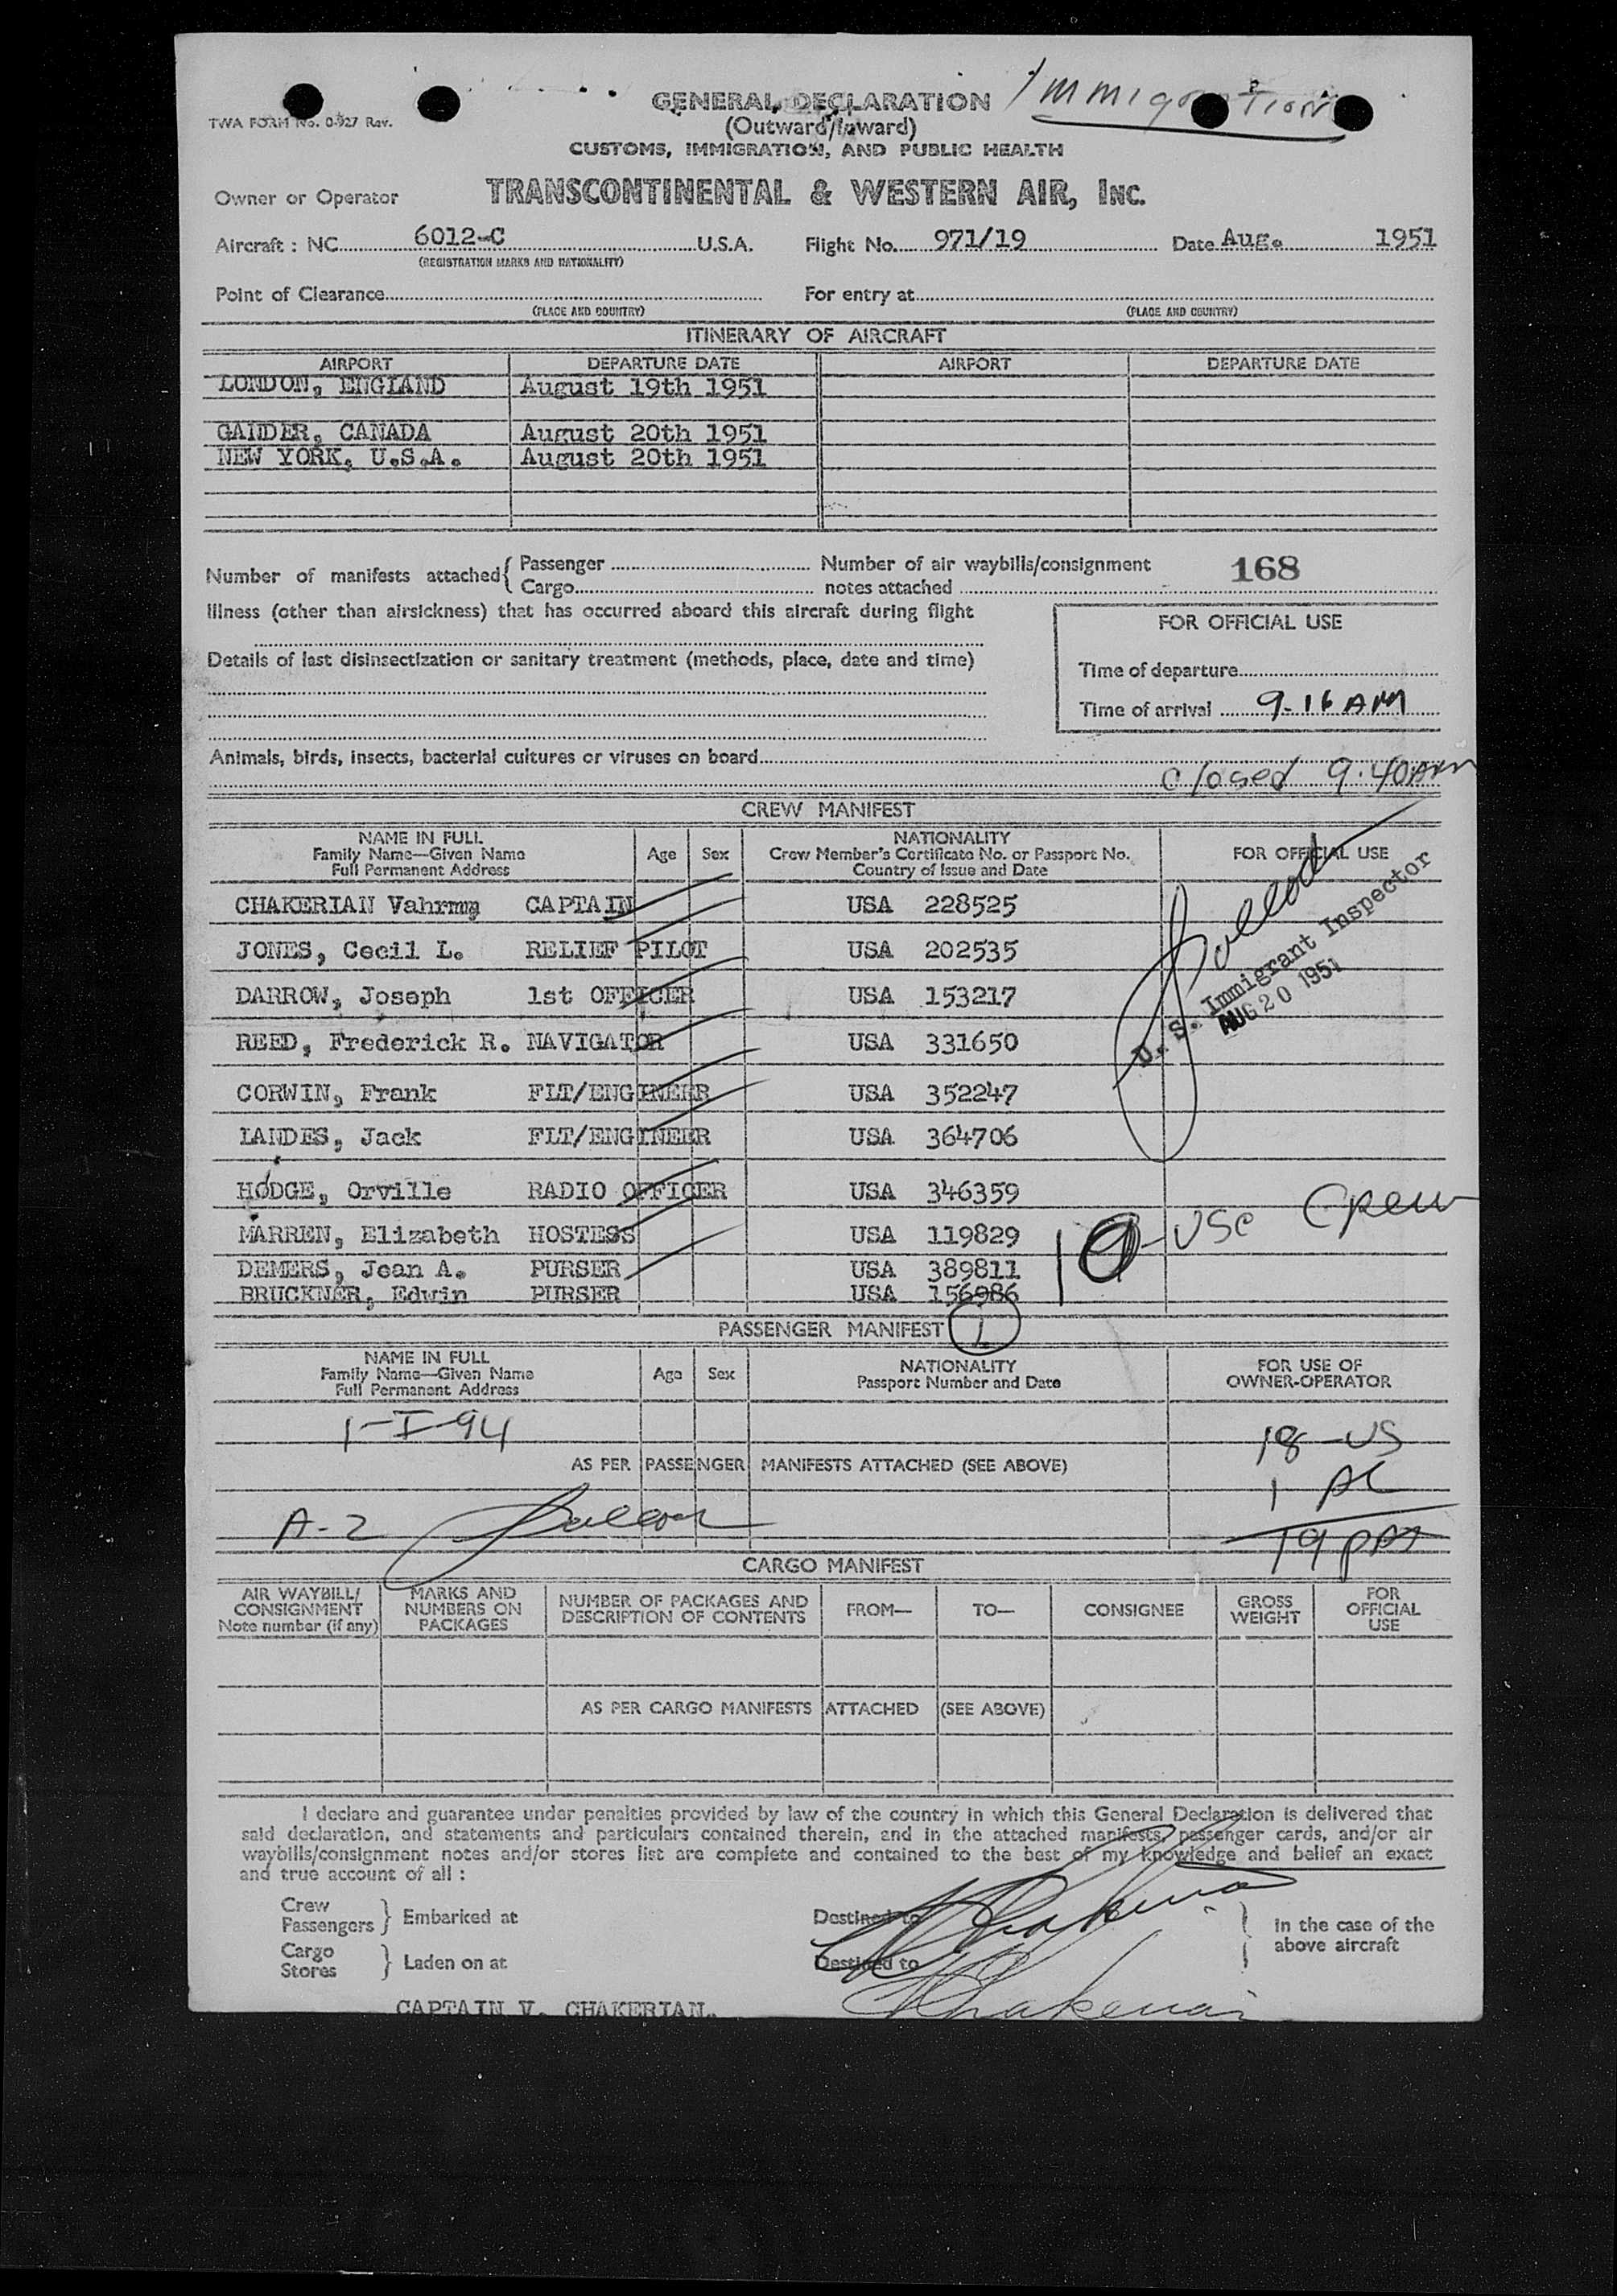 Immigration
TWA FORM No. 0-927 Rev.
GENERAL DECLARATION
(Outward/Inward)
CUSTOMS, IMMIGRATION, AND PUBLIC HEALTH
Owner or Operator TRANSCONTINENTAL & WESTERN AIR, INC.
Aircraft : NC 6012-C U.S.A. Flight No. 971/19 Date Aug. 1951
(REGISTRATION MARKS AND NATIONALITY)
Point of Clearance For entry at
(PLACE AND COUNTRY) (PLACE AND COUNTRY)
ITINERARY OF AIRCRAFT
AIRPORT DEPARTURE DATE AIRPORT DEPARTURE DATE
LONDON, ENGLAND August 19th 1951
GANDER, CANADA August 20th 1951
NEW YORK, U.S.A. August 20th 1951
Number of manifests attached { Passenger Number of air waybills/consignment 168
Cargo notes attached
Illness (other than airsickness) that has occurred aboard this aircraft during flight
FOR OFFICIAL USE
Details of last disinsectization or sanitary treatment (methods, place, date and time)
Time of departure
Time of arrival 9.16 AM
Animals, birds, insects, bacterial cultures or viruses on board
closed 9:40AM
CREW MANIFEST
NAME IN FULL
Family Name—Given Name
Full Permanent Address
Age Sex
NATIONALITY
Crew Member's Certificate No. or Passport No.
Country of Issue and Date
FOR OFFICIAL USE
CHAKERIAN Vahrmg CAPTAIN USA 228525
JONES, Cecil L. RELIEF PILOT USA 202535
DARROW, Joseph 1st OFFICER USA 153217
REED, Frederick R. NAVIGATOR USA 331650
CORWIN, Frank FLT/ENGINEER USA 352247
LANDES, Jack FLT/ENGINEER USA 364706
HODGE, Orville RADIO OFFICER USA 346359
MARREN, Elizabeth HOSTESS USA 119829
DEMERS, Jean A. PURSER USA 389811
BRUCKNER, Edwin PURSER USA 156986
U. S. Immigrant Inspector
AUG 20 1951
10-USC Crew
PASSENGER MANIFEST 1
NAME IN FULL
Family Name—Given Name
Full Permanent Address
Age Sex
NATIONALITY
Passport Number and Date
FOR USE OF
OWNER-OPERATOR
1-I-94 18-US
AS PER PASSENGER MANIFESTS ATTACHED (SEE ABOVE)
1 AC
A-2
19 pas
CARGO MANIFEST
AIR WAYBILL/
CONSIGNMENT
Note number (if any)
MARKS AND
NUMBERS ON
PACKAGES
NUMBER OF PACKAGES AND
DESCRIPTION OF CONTENTS
FROM— TO— CONSIGNEE
GROSS
WEIGHT
FOR
OFFICIAL
USE
AS PER CARGO MANIFESTS ATTACHED (SEE ABOVE)
I declare and guarantee under penalties provided by law of the country in which this General Declaration is delivered that
said declaration, and statements and particulars contained therein, and in the attached manifests, passenger cards, and/or air
waybills/consignment notes and/or stores list are complete and contained to the best of my knowledge and belief an exact
and true account of all :
Crew
Passengers } Embarked at Destined to
Cargo
Stores } Laden on at Destined to
} In the case of the
above aircraft
V Chakerian
V Chakerian
CAPTAIN V. CHAKERIAN.